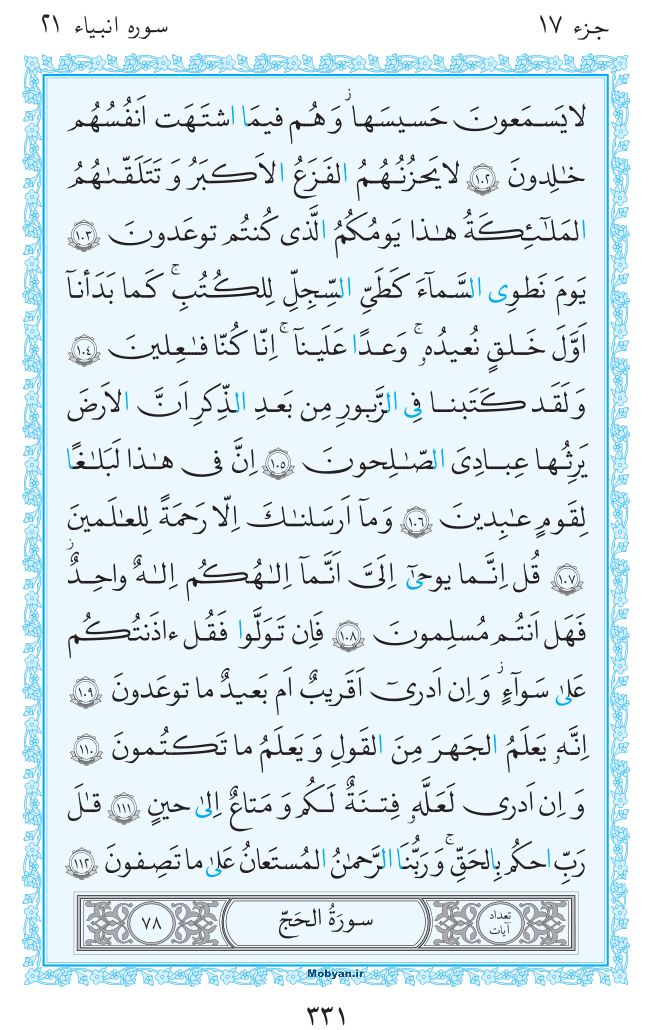 جزء ١٧
سوره انبیاء ٢١
لا يَسمَعونَ حَسيسَها ۖ وَهُم فيمَا اشتَهَت اَنفُسُهُم
خٰلِدونَ ﴿١٠٢﴾ لا يَحزُنُهُمُ الفَزَعُ الاَكبَرُ وَ تَتَلَقّىٰهُمُ
المَلٰٓئِكَةُ هٰذا يَومُكُمُ الَّذى كُنتُم توعَدونَ ﴿١٠٣﴾
يَومَ نَطوِى السَّمآءَ كَطَىِّ السِّجِلِّ لِلكُتُبِ ۚ كَما بَدَأنآ
اَوَّلَ خَلقٍ نُعيدُه‌و ۚ وَعدًا عَلَينآ ۚ اِنّا كُنّا فٰعِلينَ ﴿١٠٤﴾
وَ لَقَد كَتَبنا فِى الزَّبورِ مِن بَعدِ الذِّكرِ اَنَّ الاَرضَ
يَرِثُها عِبادِىَ الصّٰلِحونَ ﴿١٠٥﴾ اِنَّ فى هٰذا لَبَلٰغًا
لِقَومٍ عٰبِدينَ ﴿١٠٦﴾ وَمآ اَرسَلنٰكَ اِلّا رَحمَةً لِلعٰلَمينَ
﴿١٠٧﴾ قُل اِنَّما يوحىٰٓ اِلَىَّ اَنَّمآ اِلٰهُكُم اِلٰهٌ واحِدٌ ۖ
فَهَل اَنتُم مُسلِمونَ ﴿١٠٨﴾ فَاِن تَوَلَّوا فَقُل ءاذَنتُكُم
عَلىٰ سَوآءٍ ۖ وَ اِن اَدرىٓ اَقَريبٌ اَم بَعيدٌ ما توعَدونَ ﴿١٠٩﴾
اِنَّه‌و يَعلَمُ الجَهرَ مِنَ القَولِ وَ يَعلَمُ ما تَكتُمونَ ﴿١١٠﴾
وَ اِن اَدرى لَعَلَّه‌و فِتنَةٌ لَكُم وَ مَتاعٌ اِلىٰ حينٍ ﴿١١١﴾ قٰلَ
رَبِّ احكُم بِالحَقِّ ۚ وَ رَبُّنَا الرَّحمٰنُ المُستَعانُ عَلىٰ ما تَصِفونَ ﴿١١٢﴾
تعداد
آیات
سورَةُ الحَجّ
٧٨
Mobyan.ir
٣٣١